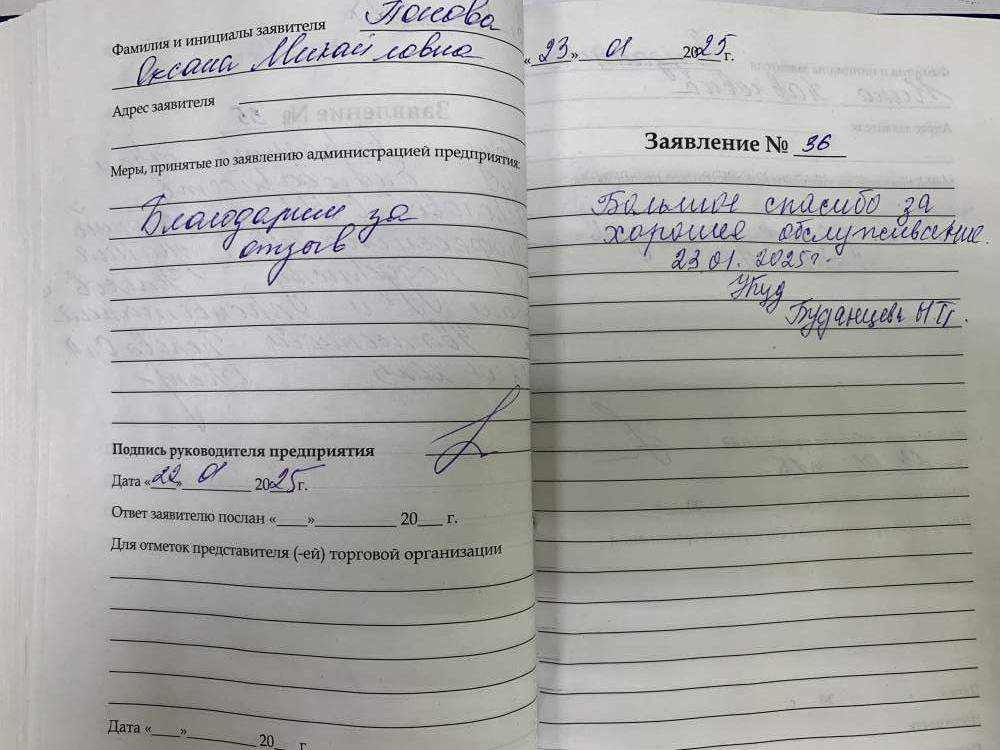 Фамилия и инициалы заявителя Попова
Оксана Михайловна
Адрес заявителя
Меры, принятые по заявлению администрацией предприятия:
Благодарим за
отзыв
Подпись руководителя предприятия
Дата «22» 01 2025 г.
Ответ заявителю послан «___»__________ 20___ г.
Для отметок представителя (-ей) торговой организации
Дата «___»__________ 20__ г.
«23» 01 2025 г.
Заявление № 36
Большое спасибо за
хорошее обслуживание.
23.01.2025г.
Буданцева Н П.